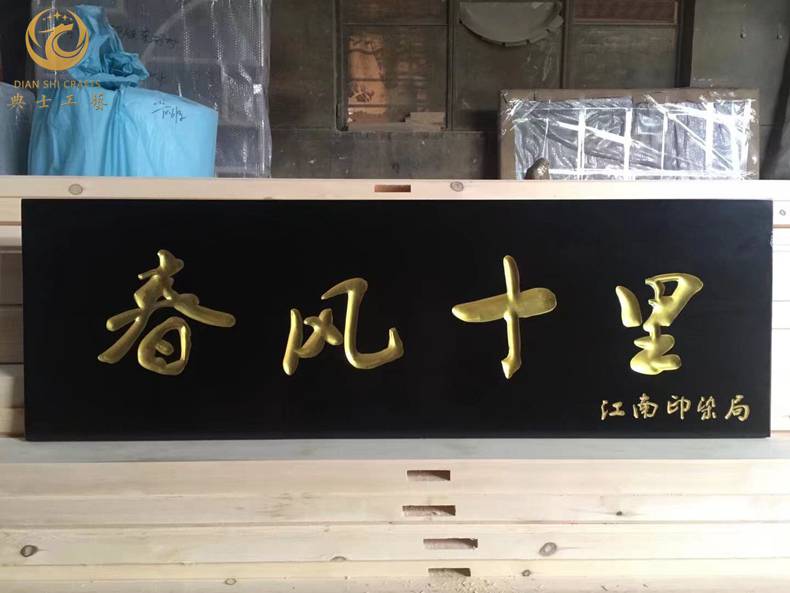 DIAN SHI CRAFTS
典士工艺
春风十里
江南印染局